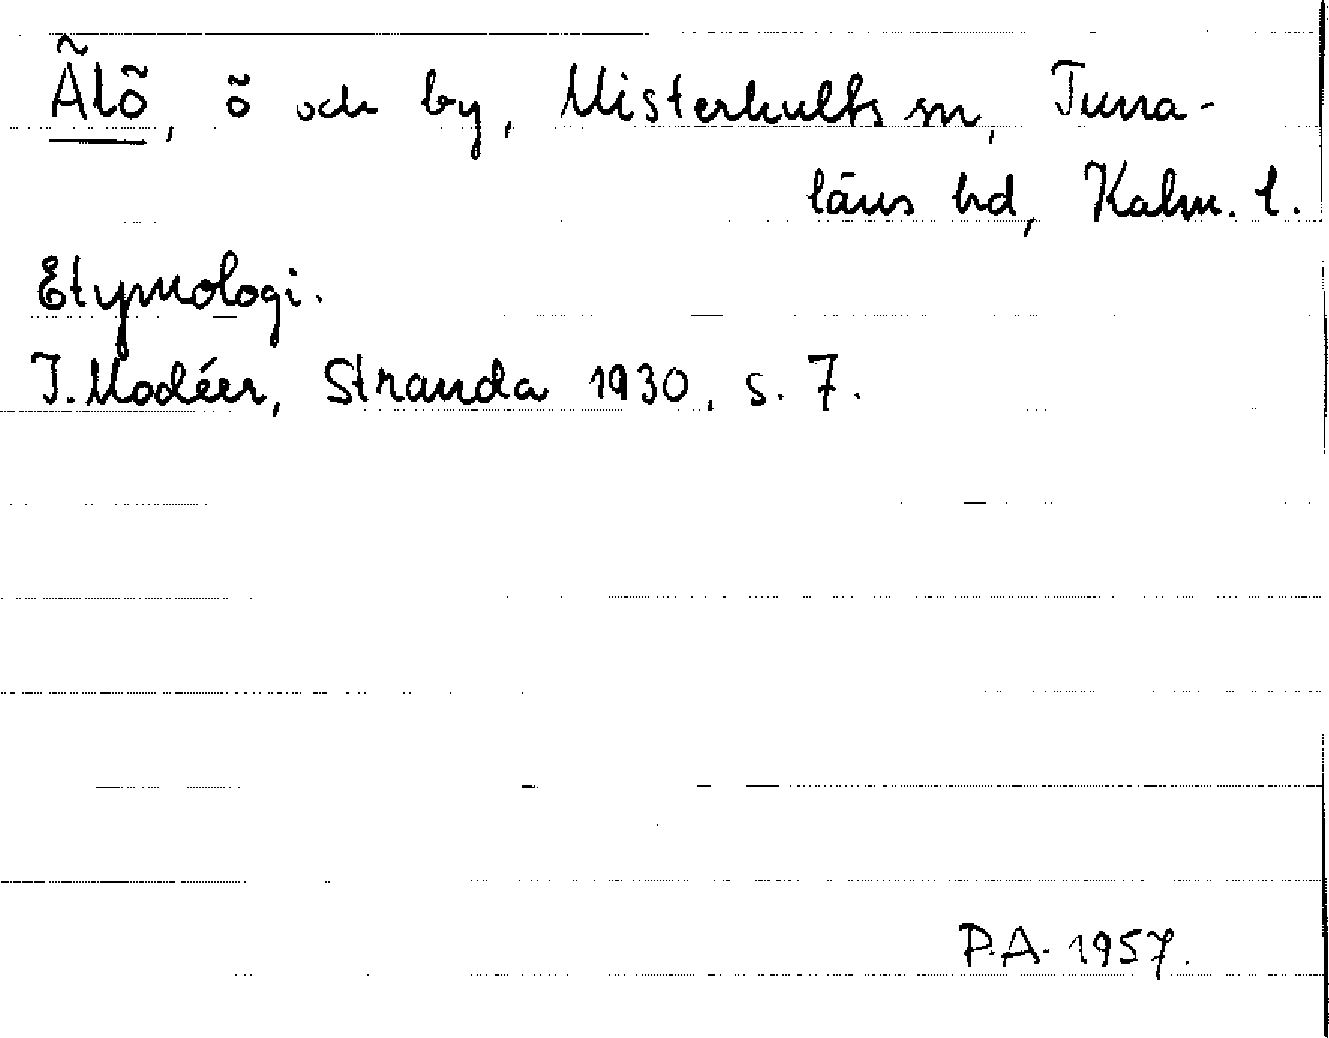 Älö, ö och by, Misterhults sn, Tuna-
läns hd, Kalm. l.
Etymologi.
I. Modéer, Stranda 1930, s. 7.
P.A. 1957.